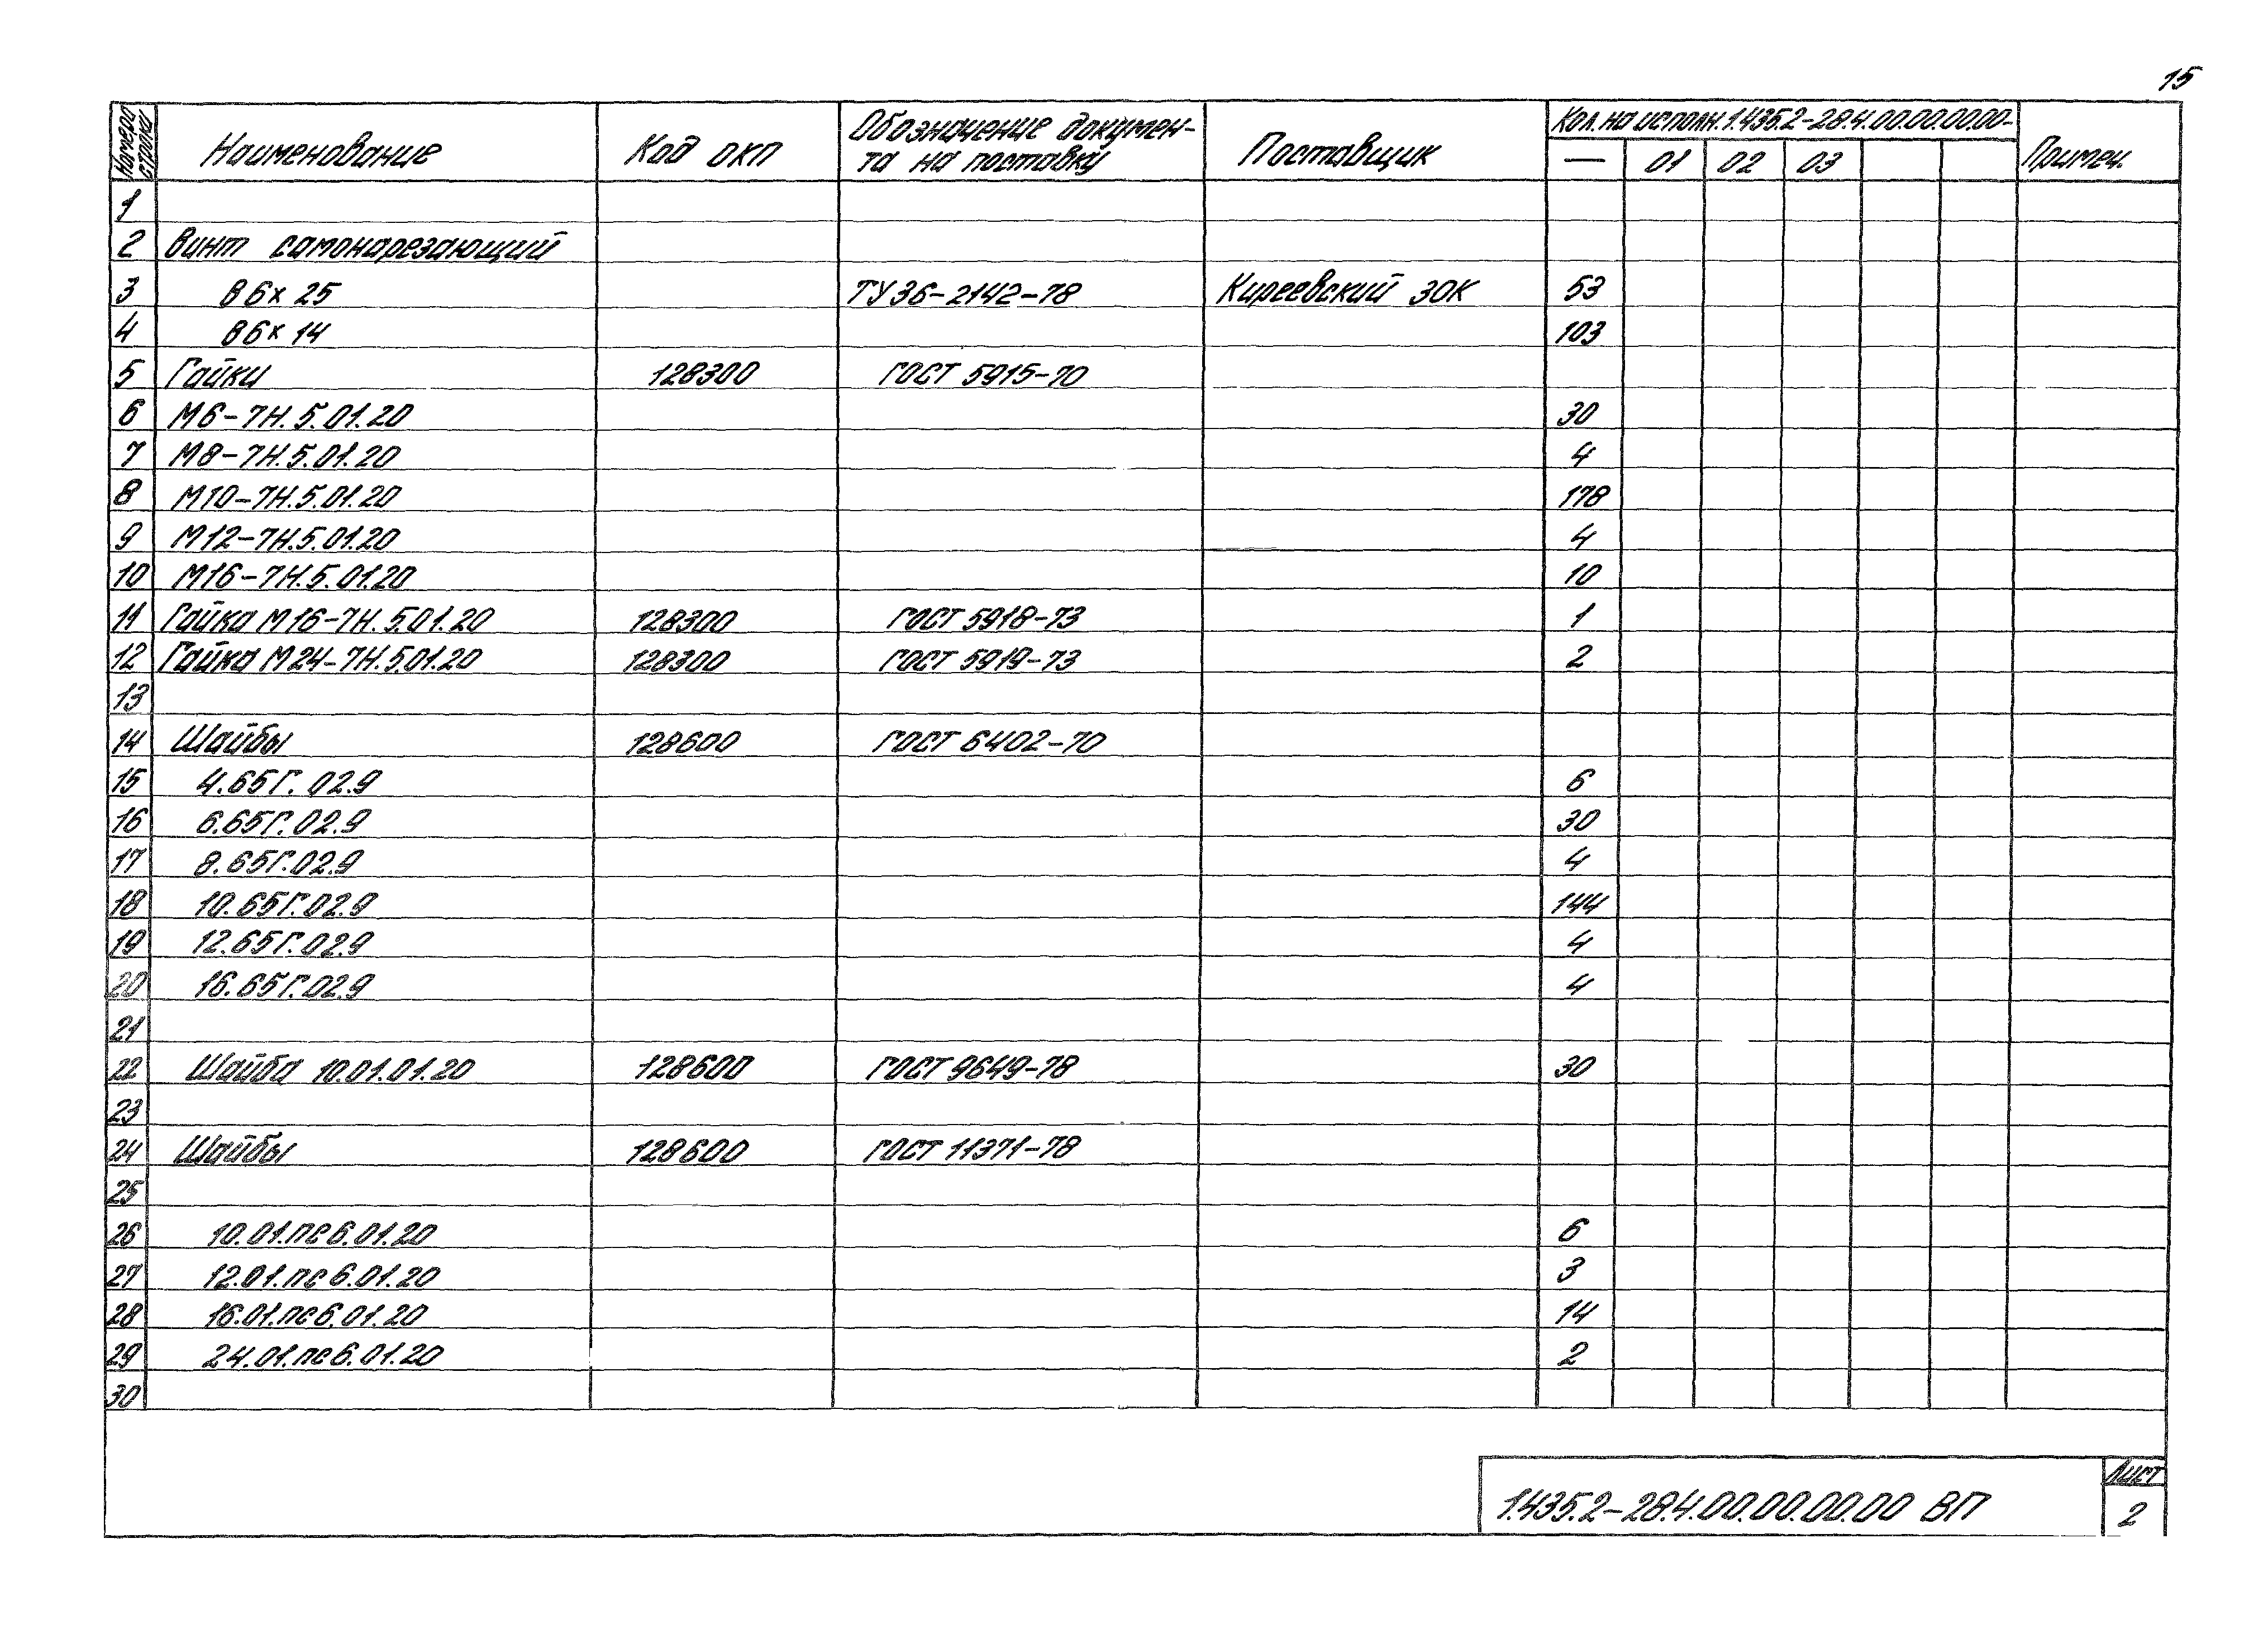 15
Номера строки Наименование Код ОКП Обозначение докумен-та на поставку Поставщик Кол. на исполн. 1.435.2-28.4.00.00.00.00- Примеч.
— 01 02 03
1
2 Винт самонарезающий
3 В6х25 ТУ36-2142-78 Киреевский ЗОК 53
4 В6х14 103
5 Гайки 128300 ГОСТ 5915-70
6 М6-7Н.5.01.20 30
7 М8-7Н.5.01.20 4
8 М10-7Н.5.01.20 178
9 М12-7Н.5.01.20 4
10 М16-7Н.5.01.20 10
11 Гайка М16-7Н.5.01.20 128300 ГОСТ 5918-73 1
12 Гайка М24-7Н.5.01.20 128300 ГОСТ 5919-73 2
13
14 Шайбы 128600 ГОСТ 6402-70
15 4.65Г.02.9 6
16 6.65Г.02.9 30
17 8.65Г.02.9 4
18 10.65Г.02.9 144
19 12.65Г.02.9 4
20 16.65Г.02.9 4
21
22 Шайба 10.01.01.20 128600 ГОСТ 9649-78 30
23
24 Шайбы 128600 ГОСТ 11371-78
25
26 10.01.пс6.01.20 6
27 12.01.пс6.01.20 3
28 16.01.пс6.01.20 14
29 24.01.пс6.01.20 2
30
1.435.2-28.4.00.00.00.00 ВП
Лист
2